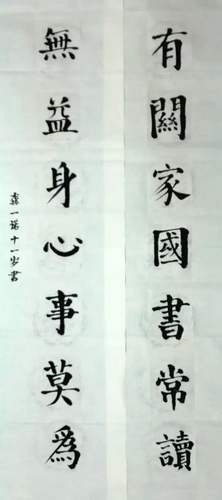 有關家國書常讀
無益身心事莫爲
一諾十一岁書